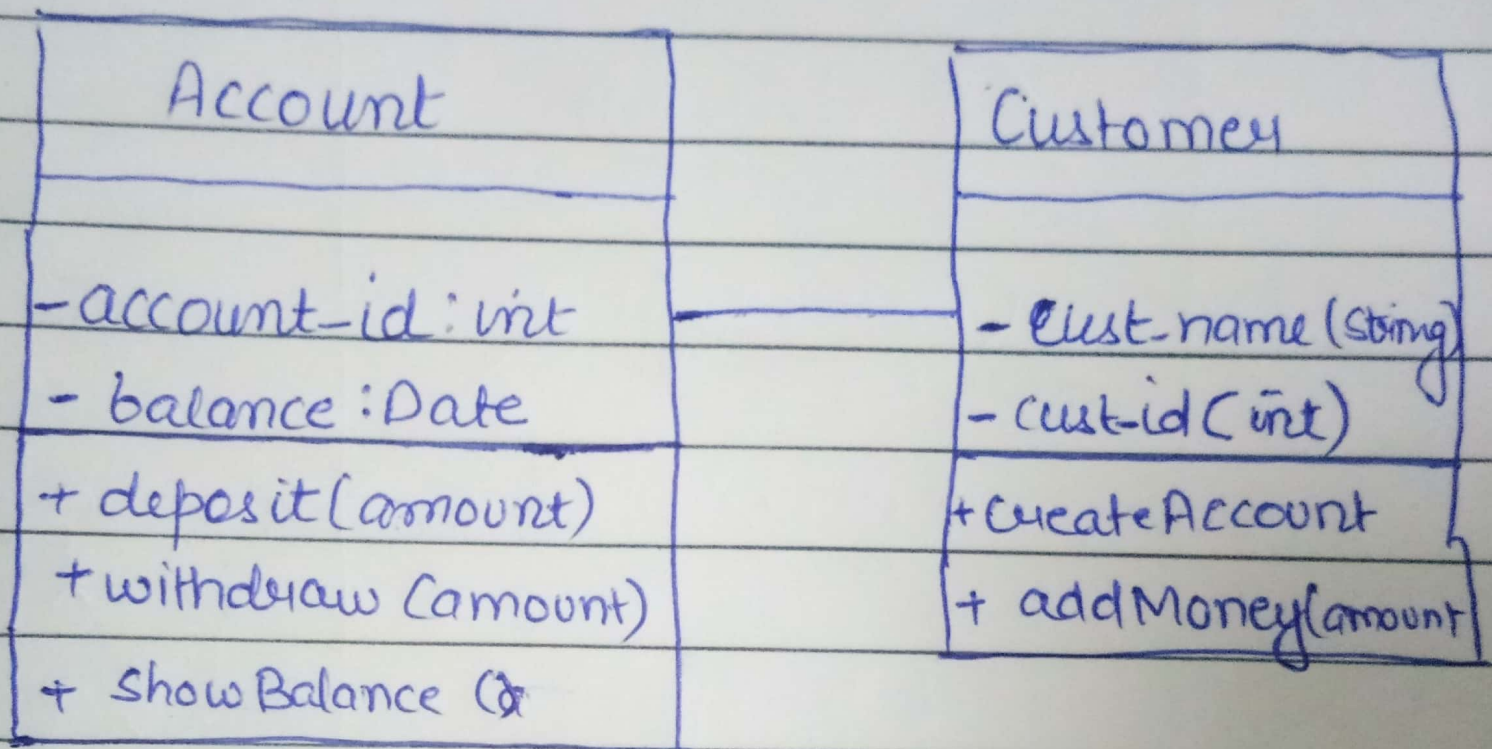 Account
- account_id : int
- balance : Date
+ deposit(amount)
+ withdraw (amount)
+ showBalance (
Customer
- Cust-name (String)
- cust-id (int)
+ createAccount
+ addMoney(amount